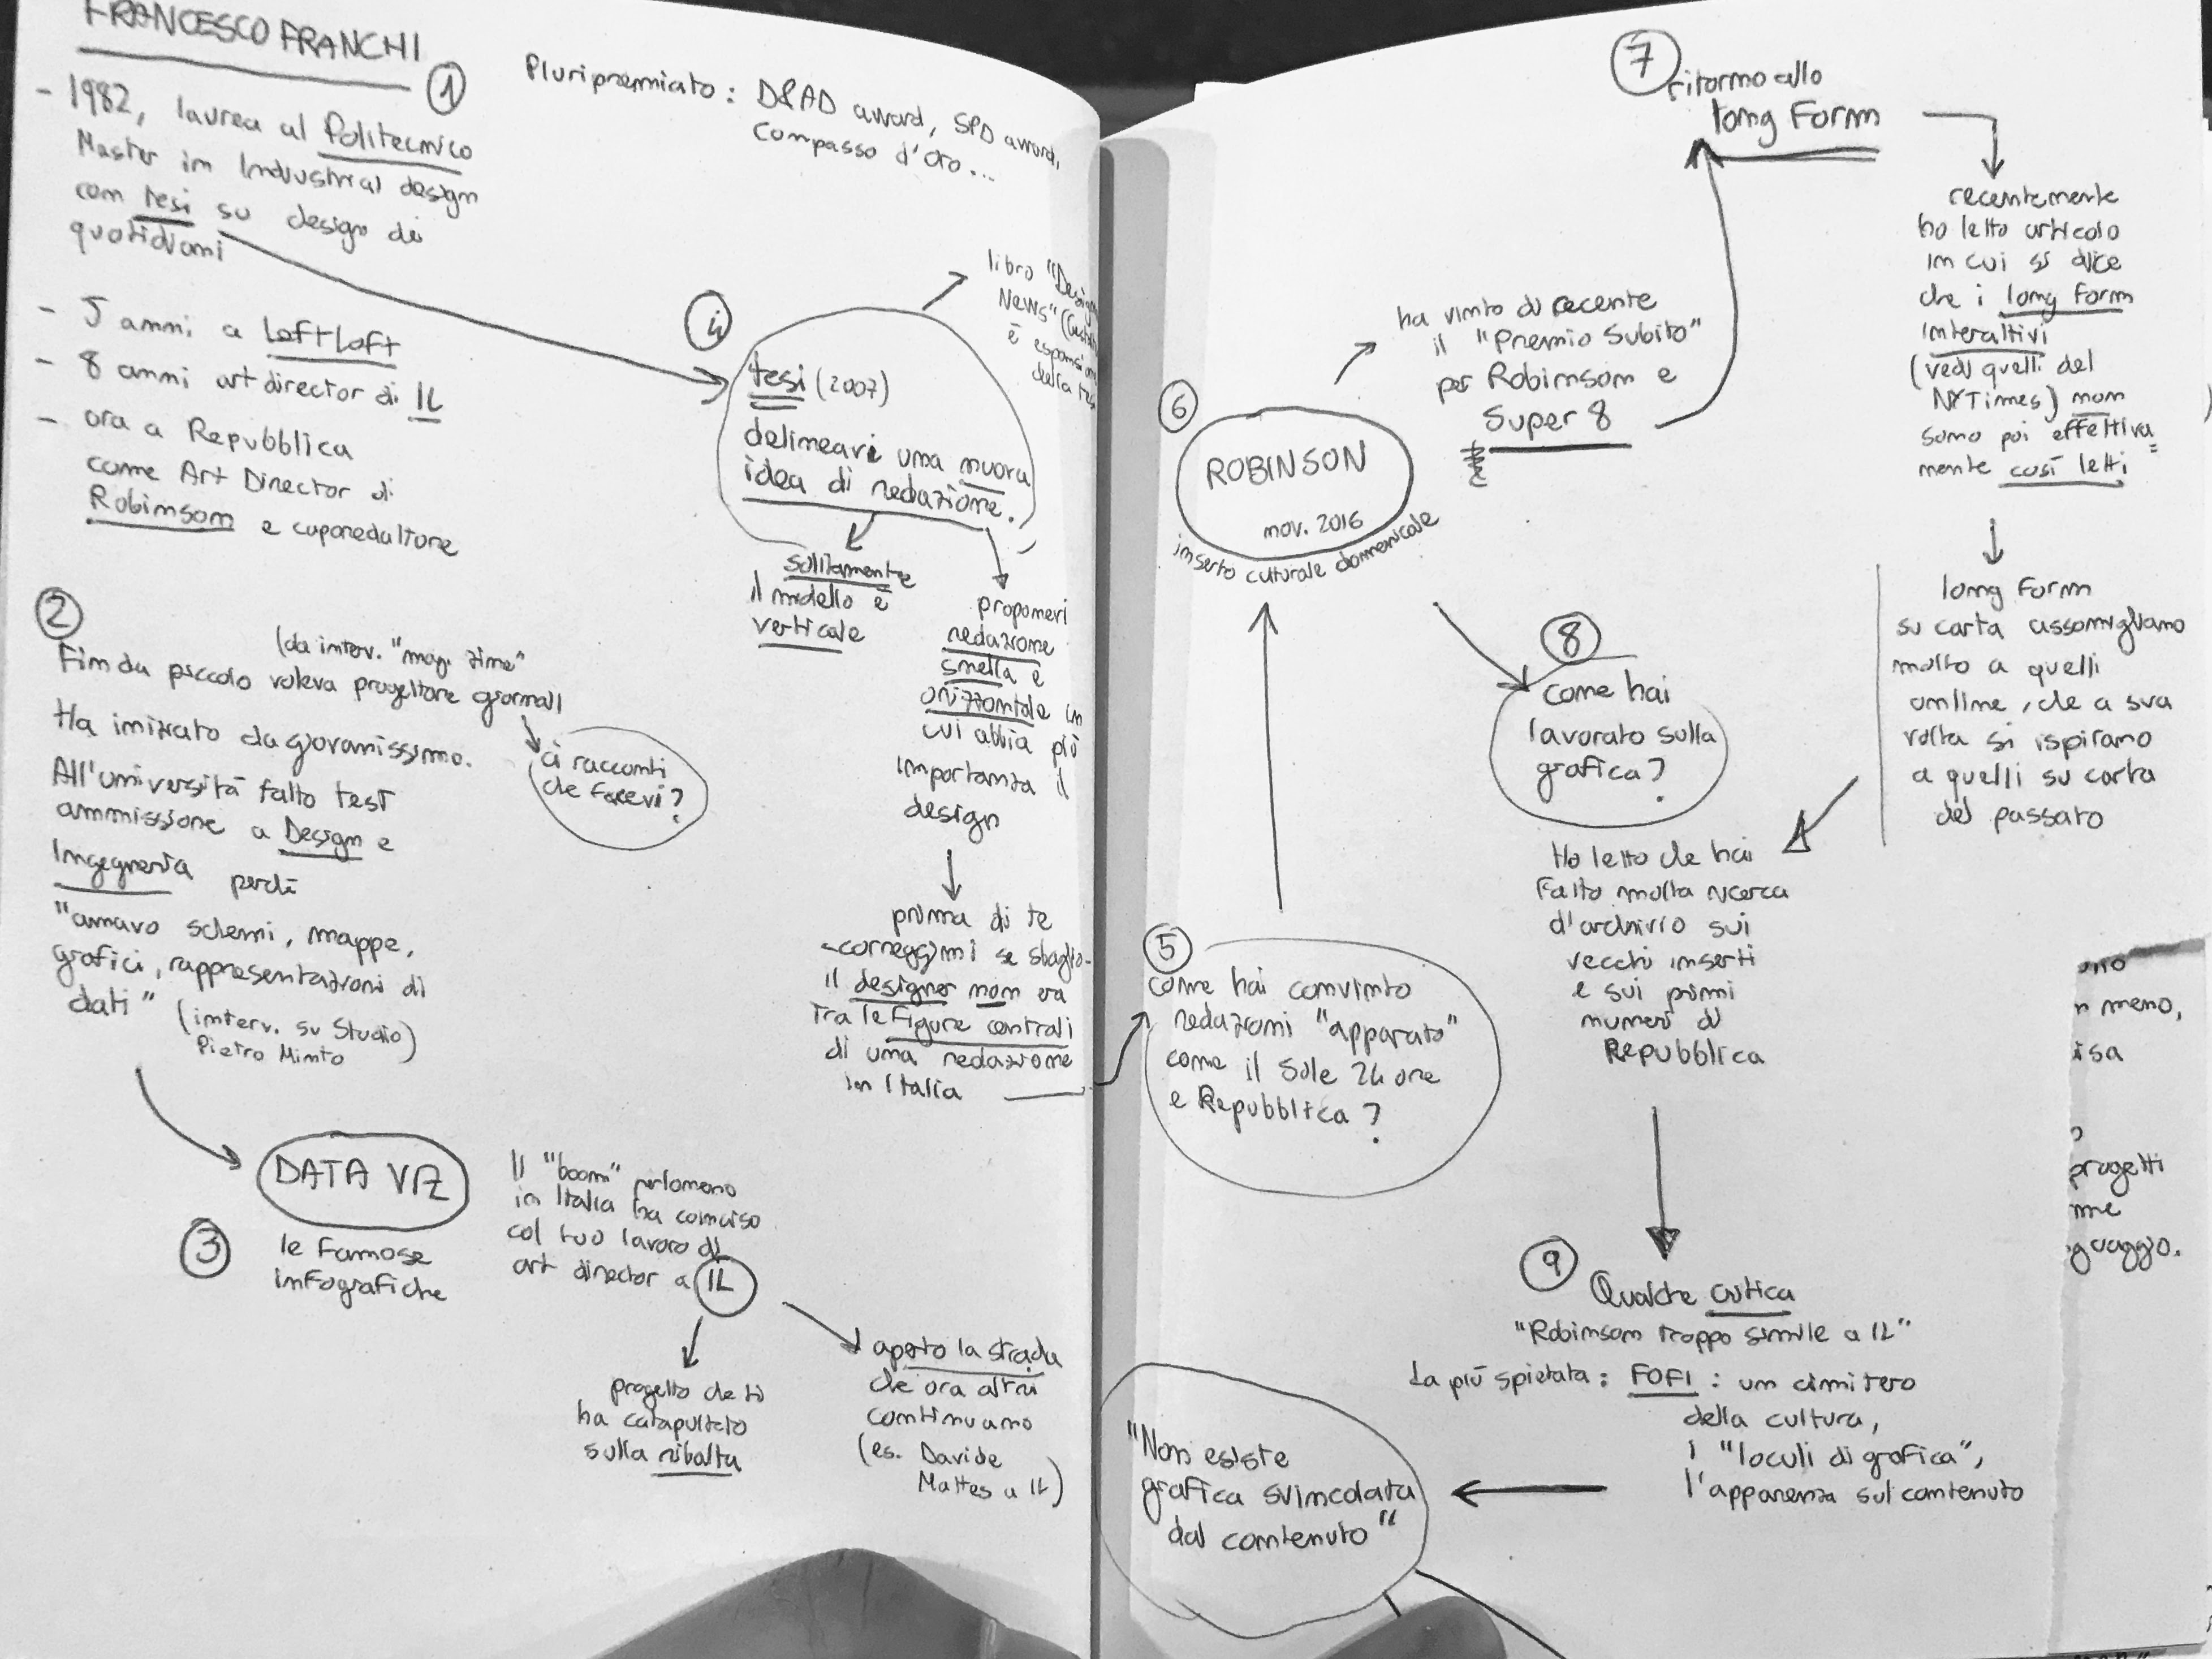 FRANCESCO FRANCHI
1
- 1982, laurea al Politecnico
Master in Industrial design
con tesi su design di
quotidiani
- 5 anni a LeftLoft
- 8 anni art director di IL
- ora a Repubblica
come Art Director di
Robinson e caporedattore
Pluripremiato: D&AD award, SPD award,
Compasso d'Oro...
2
(da interv. "mag. zine"
Fin da piccolo voleva progettare giornali
Ha iniziato da giovanissimo.
ci racconti
che facevi?
All'università fatto test
ammissione a Design e
Ingegneria perché
"amavo schemi, mappe,
grafici, rappresentazioni di
dati" (interv. su Studio)
Pietro Minto
DATA VIZ
3
le famose
infografiche
Il "boom" perlomeno
in Italia ha coinciso
col tuo lavoro di
art director a IL
progetto che ti
ha catapultato
sulla ribalta
aperto la strada
che ora altri
continuano
(es. Davide
Mattes a IL)
4
tesi (2007)
delineavi una nuova
idea di redazione.
libro "Design
News"
è espansione
della tesi
solitamente
il modello è
verticale
proponevi
redazione
snella e
orizzontale in
cui abbia più
importanza il
design
prima di te
-correggimi se sbaglio-
il designer non era
tra le figure centrali
di una redazione
in Italia
5
come hai convinto
redazioni "apparato"
come il Sole 24 ore
e Repubblica?
6
ROBINSON
nov. 2016
inserto culturale domenicale
ha vinto di recente
il "Premio Subito"
per Robinson e
Super 8
7
ritorno allo
long form
recentemente
ho letto articolo
in cui si dice
che i long form
interattivi
(vedi quelli del
NYTimes) non
sono poi effettiva=
mente così letti
long form
su carta assomigliano
molto a quelli
online, che a sua
volta si ispirano
a quelli su carta
del passato
8
come hai
lavorato sulla
grafica?
Ho letto che hai
fatto molta ricerca
d'archivio sui
vecchi inserti
e sui primi
numeri di
Repubblica
9
Qualche critica
"Robinson troppo simile a IL"
La più spietata: FOFI: un cimitero
della cultura,
i "loculi di grafica",
l'apparenza sul contenuto
"Non esiste
grafica svincolata
dal contenuto"
n meno,
isa
progetti
me
guaggio.